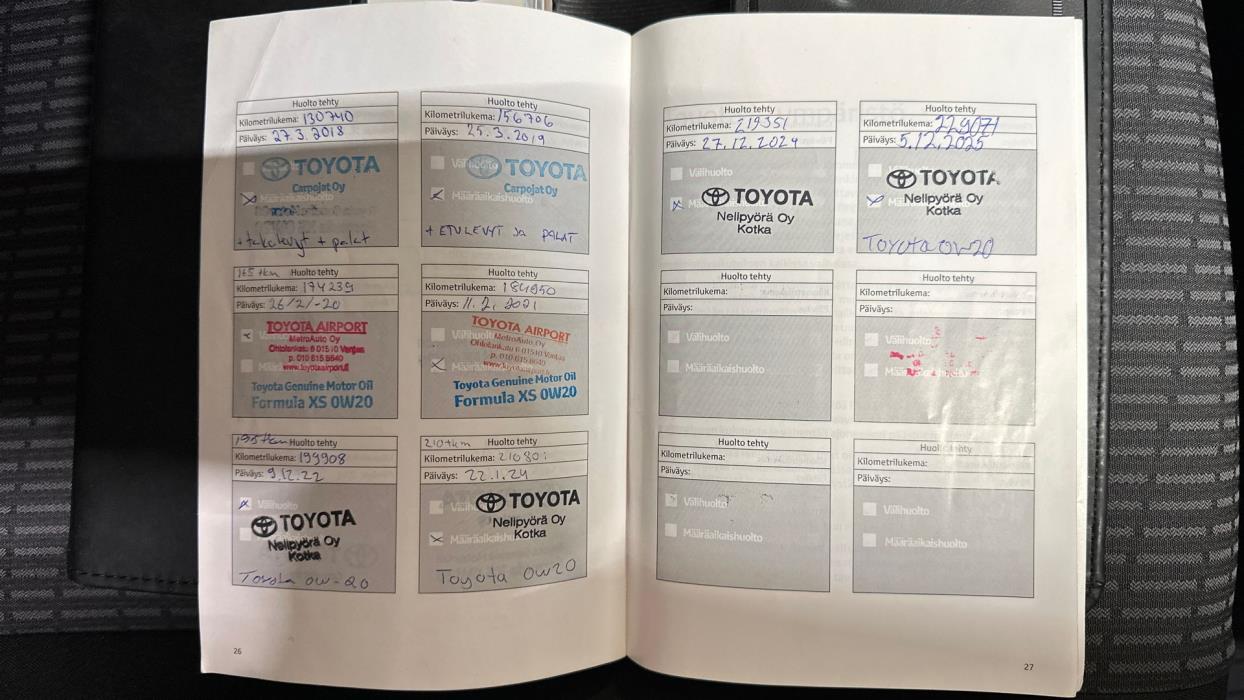 Huolto tehty
Kilometrilukema: 130740
Päiväys: 27.3.2018
TOYOTA
Carpojat Oy
Määräaikaishuolto
+ takalevyt + palat
Huolto tehty
Kilometrilukema: 156706
Päiväys: 25.3.2019
Välihuolto
TOYOTA
Carpojat Oy
Määräaikaishuolto
+ ETULEVYT JA PALAT
165 tkm Huolto tehty
Kilometrilukema: 174239
Päiväys: 26/2/-20
TOYOTA AIRPORT
MetroAuto Oy
Ohtolankatu 6 01510 Vantaa
p. 010 615 8640
www.toyotaairport.fi
Toyota Genuine Motor Oil
Formula XS 0W20
Huolto tehty
Kilometrilukema: 184950
Päiväys: 11.2.2021
Välihuolto
TOYOTA AIRPORT
MetroAuto Oy
Ohtolankatu 6 01510 Vantaa
p. 010 615 8640
www.toyotaairport.fi
Toyota Genuine Motor Oil
Formula XS 0W20
195tkm Huolto tehty
Kilometrilukema: 199908
Päiväys: 9.12.22
Välihuolto
TOYOTA
Nelipyörä Oy
Kotka
Toyota 0W-20
210tkm Huolto tehty
Kilometrilukema: 210801
Päiväys: 22.1.24
TOYOTA
Nelipyörä Oy
Kotka
Määräaikaishuolto
Toyota 0W20
26
Huolto tehty
Kilometrilukema: 219351
Päiväys: 27.12.2024
Välihuolto
TOYOTA
Nelipyörä Oy
Kotka
Huolto tehty
Kilometrilukema: 229071
Päiväys: 5.12.2025
TOYOTA
Nelipyörä Oy
Kotka
Toyota 0W20
Huolto tehty
Kilometrilukema:
Päiväys:
Välihuolto
Määräaikaishuolto
Huolto tehty
Kilometrilukema:
Päiväys:
Välihuolto
Määräaikaishuolto
Huolto tehty
Kilometrilukema:
Päiväys:
Välihuolto
Määräaikaishuolto
Huolto tehty
Kilometrilukema:
Päiväys:
Välihuolto
Määräaikaishuolto
27